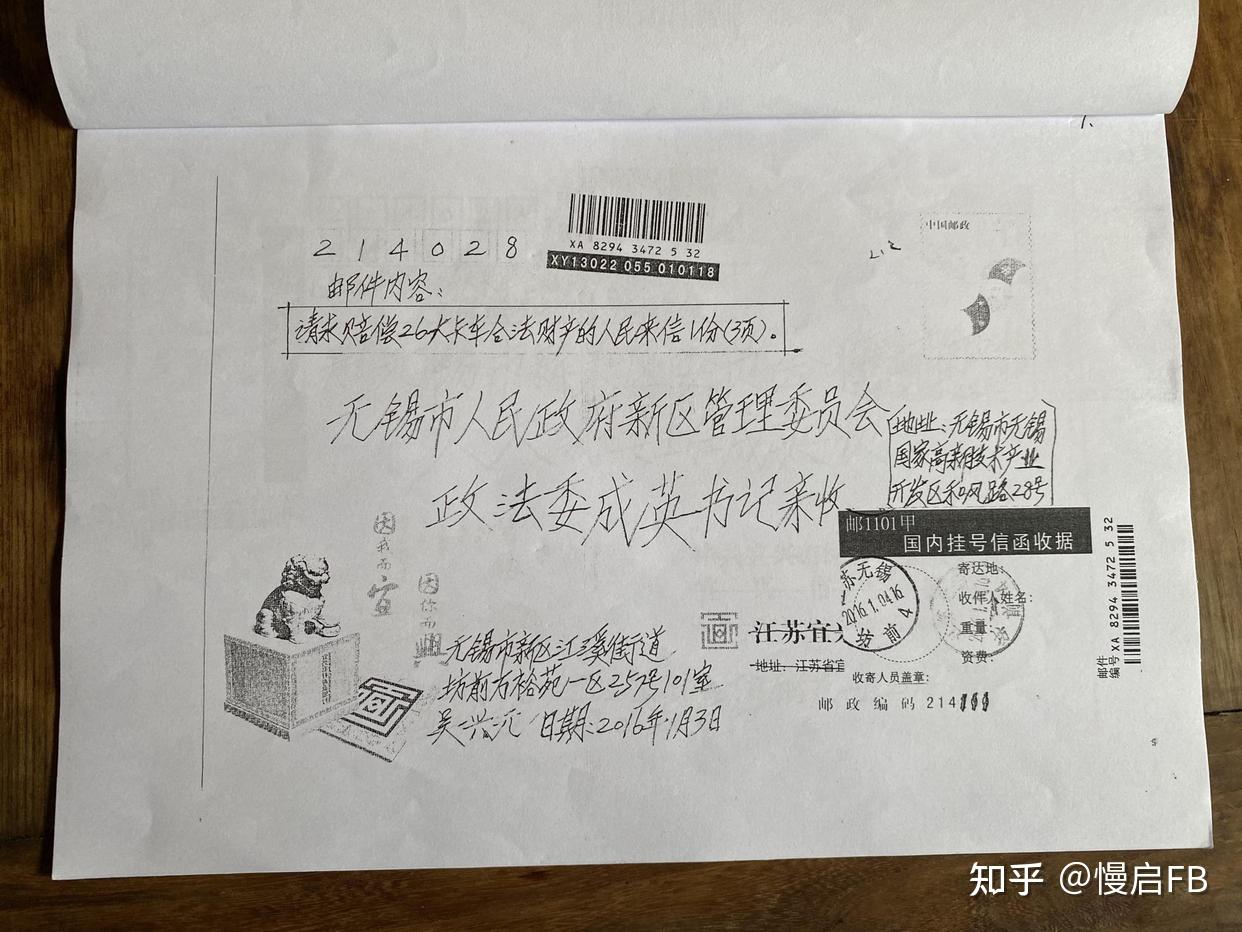 1.
214028
XA 8294 3472 5 32
XY13022 055 010118
中国邮政
邮件内容:
请求赔偿26大卡车合法财产的人民来信1份(3页)。
无锡市人民政府新区管理委员会
地址:无锡市无锡
国家高新技术产业
开发区和风路28号
政法委成英书记亲收
邮1101甲
国内挂号信函收据
因我而宜
因你而興
苏无锡
2016.1.04.16
坊前 4
寄达地:
收件人姓名:
重量:
资费:
收寄人员盖章:
邮件
编号 XA 8294 3472 5 32
江苏宜
地址:江苏省宜
邮政编码 214
无锡市新区江溪街道
坊前方裕苑一区257号101室
吴兴元 日期:2016年1月3日
知乎 @慢启FB